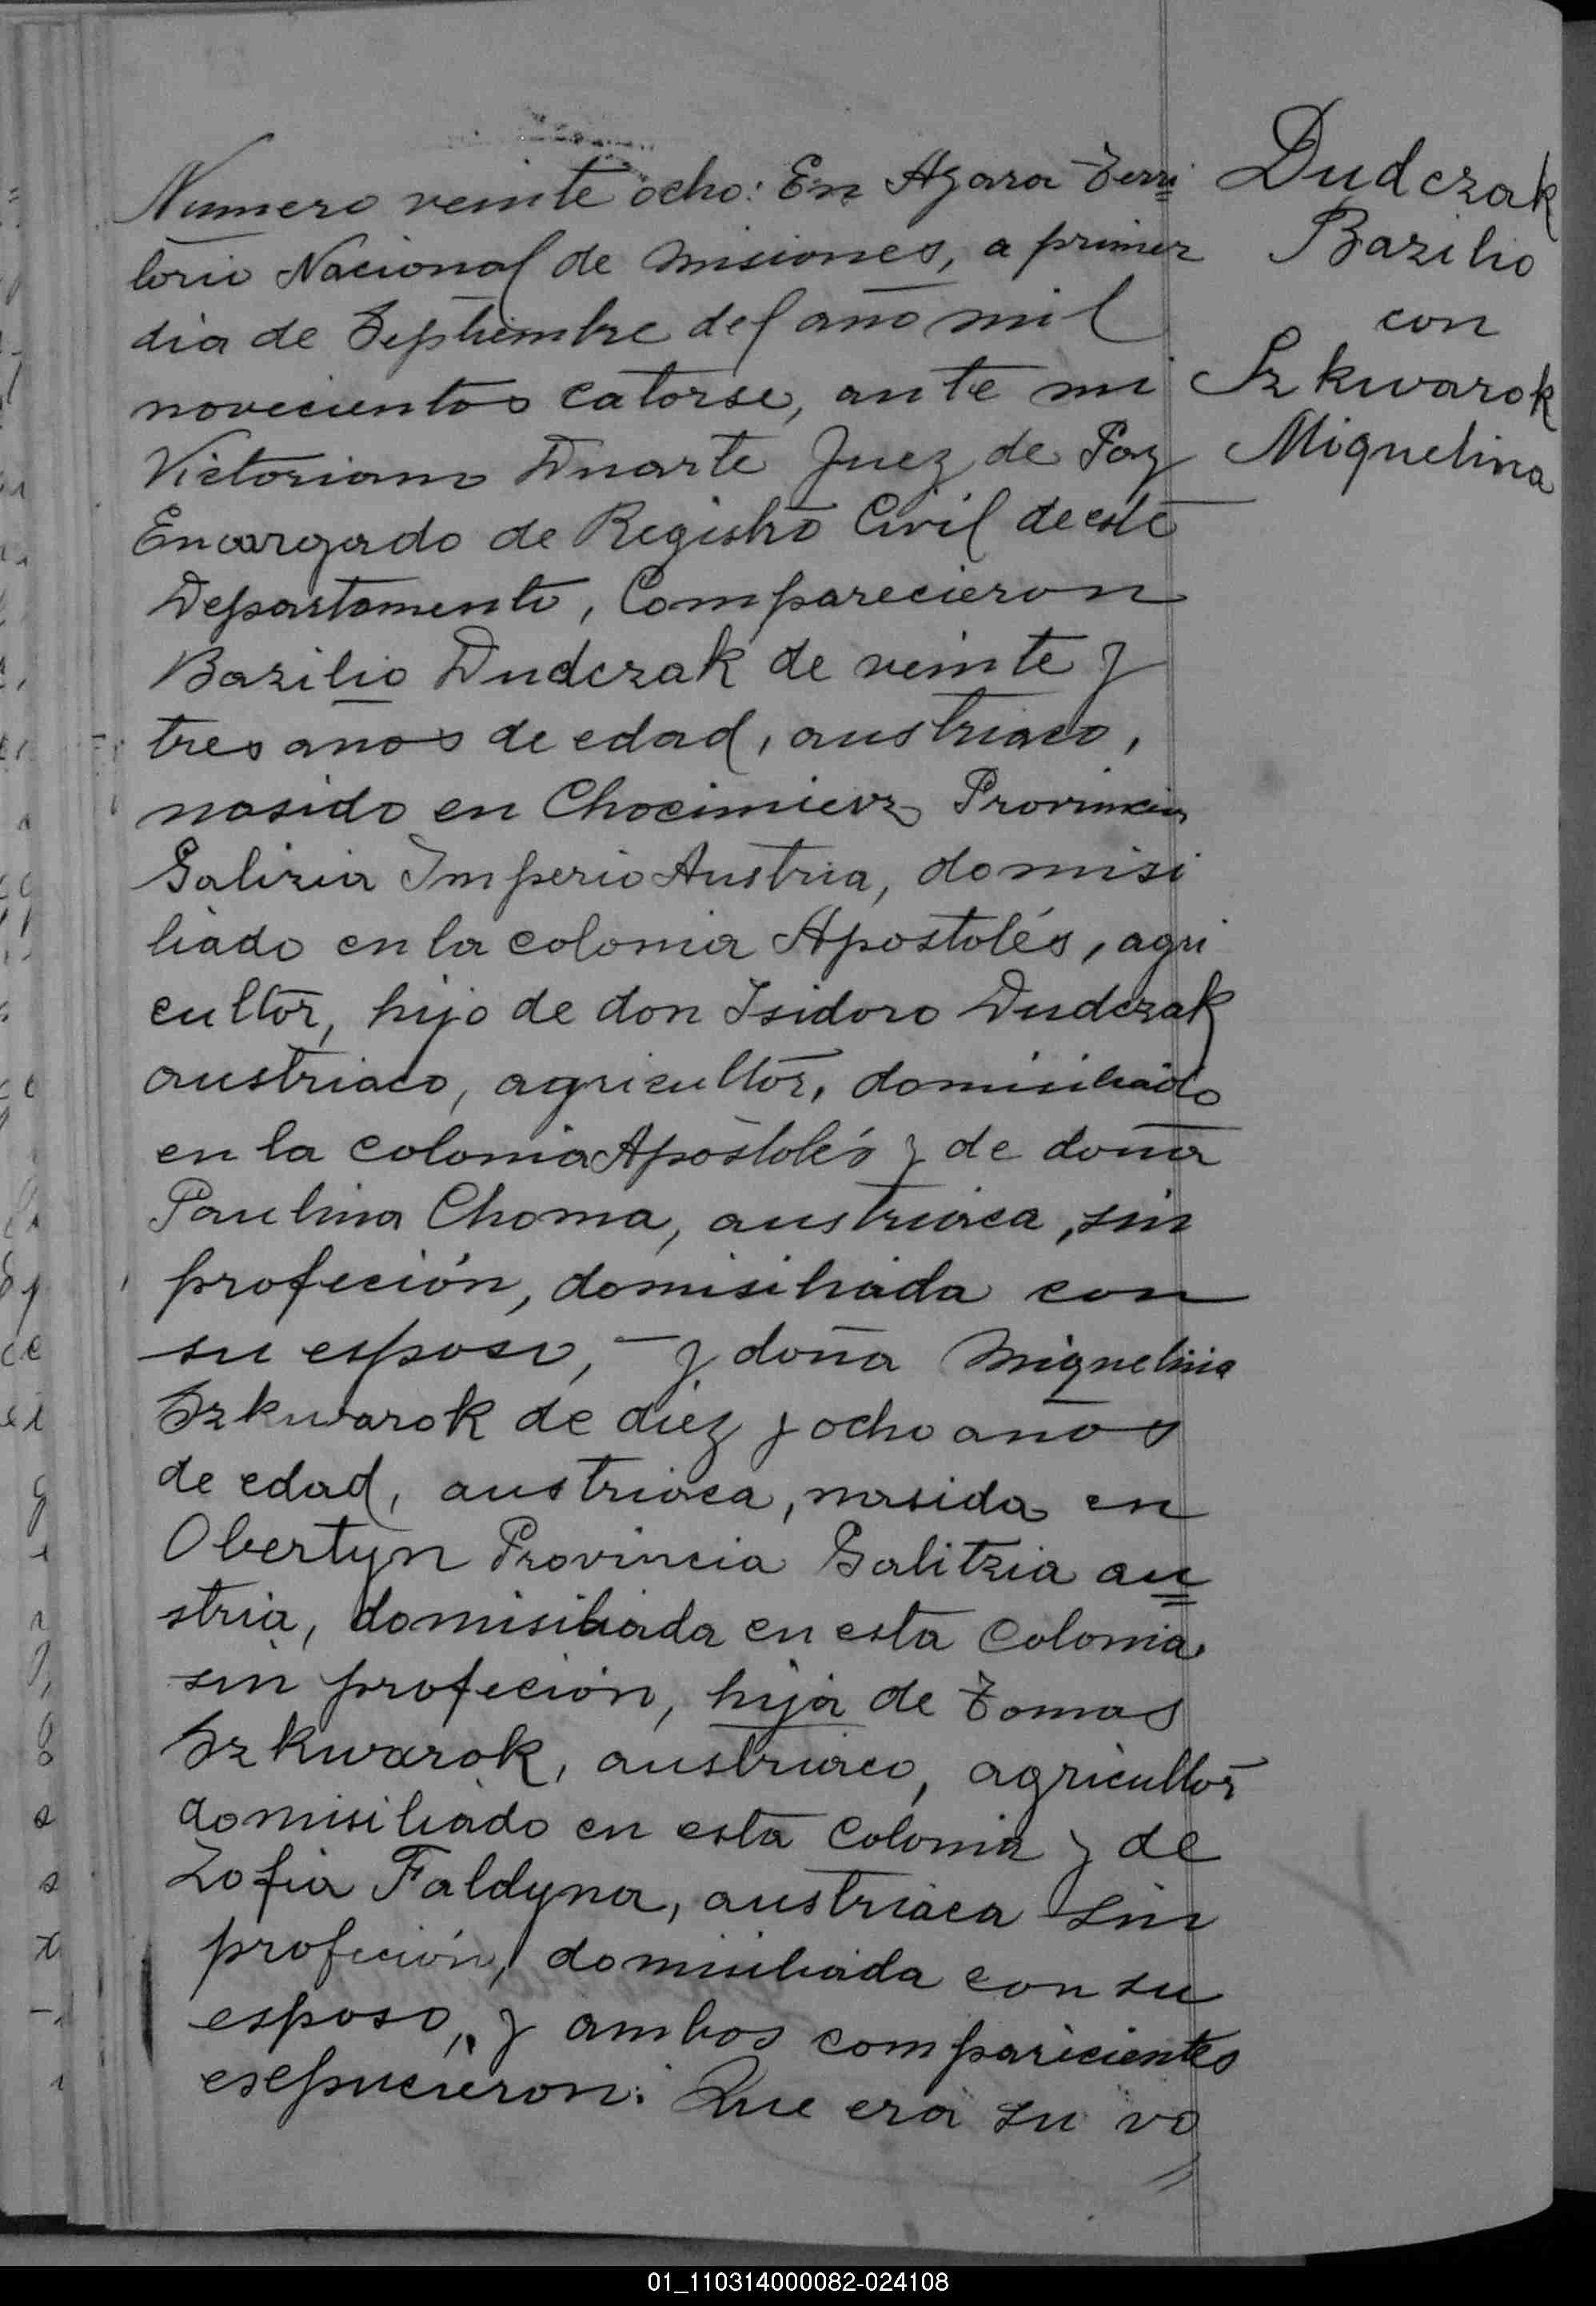 Numero veinte ocho: En Azara Terri
torio Nacional de Misiones, a primer
dia de Septiembre del año mil
novecientos catorse, ante mi
Victoriano Duarte Juez de Paz
Encargado de Registro Civil de este
Departamento, Comparecieron
Bazilio Dudczak de veinte y
tres años de edad, austriaco,
nasido en Chocimierz Provincia
Galizia Imperio Austria, domisi
liado en la colonia Apostolés, agri
cultor, hijo de don Isidoro Dudczak
austriaco, agricultor, domisiliado
en la colonia Apostolés y de doña
Paulina Choma, austriaca, sin
profeción, domisiliada con
su esposo, — y doña Miguelina
Szkwarok de diez y ocho años
de edad, austriaca, nasida en
Obertyn Provincia Galitzia au
stria, domisiliada en esta Colonia
sin profeción, hija de Tomas
Szkwarok, austriaco, agricultor
domisiliado en esta Colonia y de
Zofia Faldyna, austriaca sin
profeción, domisiliada con su
esposo, y ambos comparicientes
esepucieron: Que era su vo
Dudczak
Bazilio
con
Szkwarok
Miguelina
01_110314000082-024108